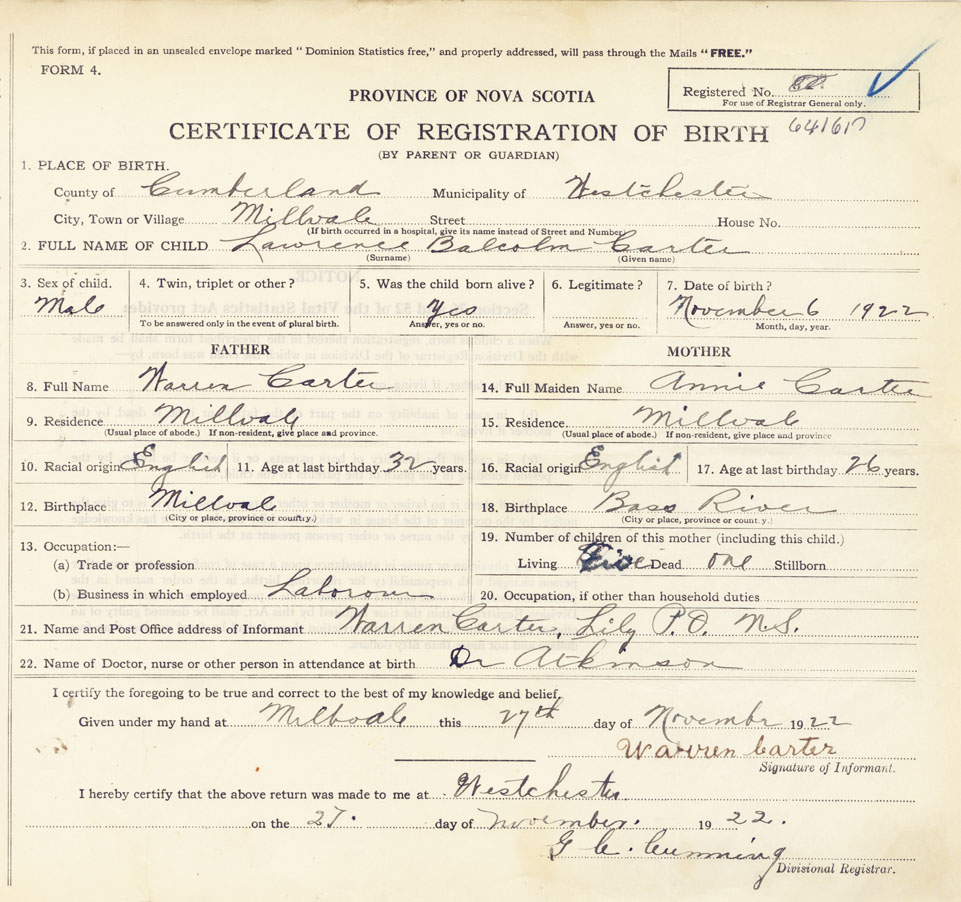 This form, if placed in an unsealed envelope marked "Dominion Statistics free," and properly addressed, will pass through the Mails "FREE."
FORM 4.
Registered No.
For use of Registrar General only.
PROVINCE OF NOVA SCOTIA
641617
CERTIFICATE OF REGISTRATION OF BIRTH
(BY PARENT OR GUARDIAN)
1. PLACE OF BIRTH.
County of Cumberland Municipality of Westchester
City, Town or Village Millvale Street House No.
(If birth occurred in a hospital, give its name instead of Street and Number)
2. FULL NAME OF CHILD Lawrence Balcolm Carter
(Surname) (Given name)
3. Sex of child. 4. Twin, triplet or other? 5. Was the child born alive? 6. Legitimate? 7. Date of birth?
Male Yes November 6 1922
To be answered only in the event of plural birth. Answer, yes or no. Answer, yes or no. Month, day, year.
FATHER MOTHER
8. Full Name Warren Carter 14. Full Maiden Name Annie Carter
9. Residence Millvale 15. Residence Millvale
(Usual place of abode.) If non-resident, give place and province. (Usual place of abode.) If non-resident, give place and province
10. Racial origin English 11. Age at last birthday 32 years. 16. Racial origin English 17. Age at last birthday 26 years.
12. Birthplace Millvale 18. Birthplace Bass River
(City or place, province or country.) (City or place, province or count.y.)
13. Occupation:— 19. Number of children of this mother (including this child.)
(a) Trade or profession Living Five Dead one Stillborn
(b) Business in which employed Laborour 20. Occupation, if other than household duties
21. Name and Post Office address of Informant Warren Carter, Lily P.O. N.S.
22. Name of Doctor, nurse or other person in attendance at birth Dr Atkinson
I certify the foregoing to be true and correct to the best of my knowledge and belief.
Given under my hand at Millvale this 27th day of November 1922
Warren Carter
Signature of Informant.
I hereby certify that the above return was made to me at Westchester
on the 27. day of November. 1922.
G C. Cumming
Divisional Registrar.